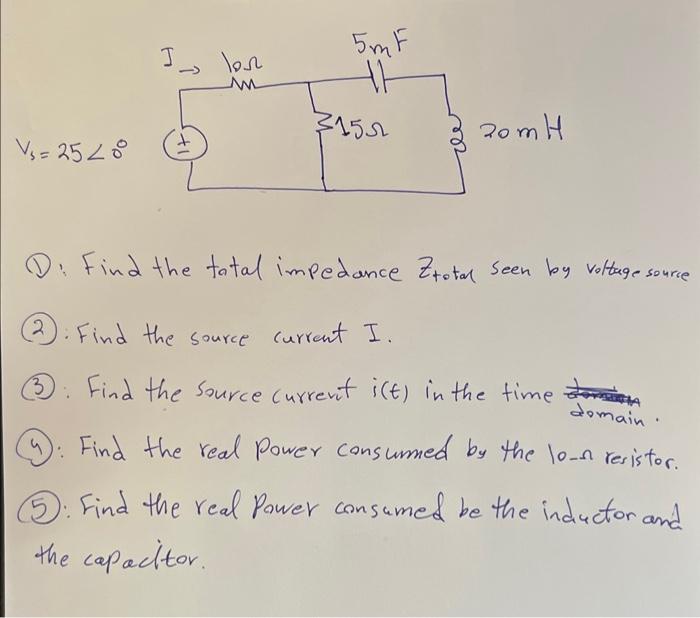 I → 10Ω
5mF
15Ω
20mH
Vs = 25∠0°
①: Find the total impedance Ztotal seen by voltage source
②: Find the source current I.
③: Find the source current i(t) in the time
domain.
④: Find the real power consumed by the 10-Ω resistor.
⑤: Find the real Power consumed be the inductor and
the capacitor.